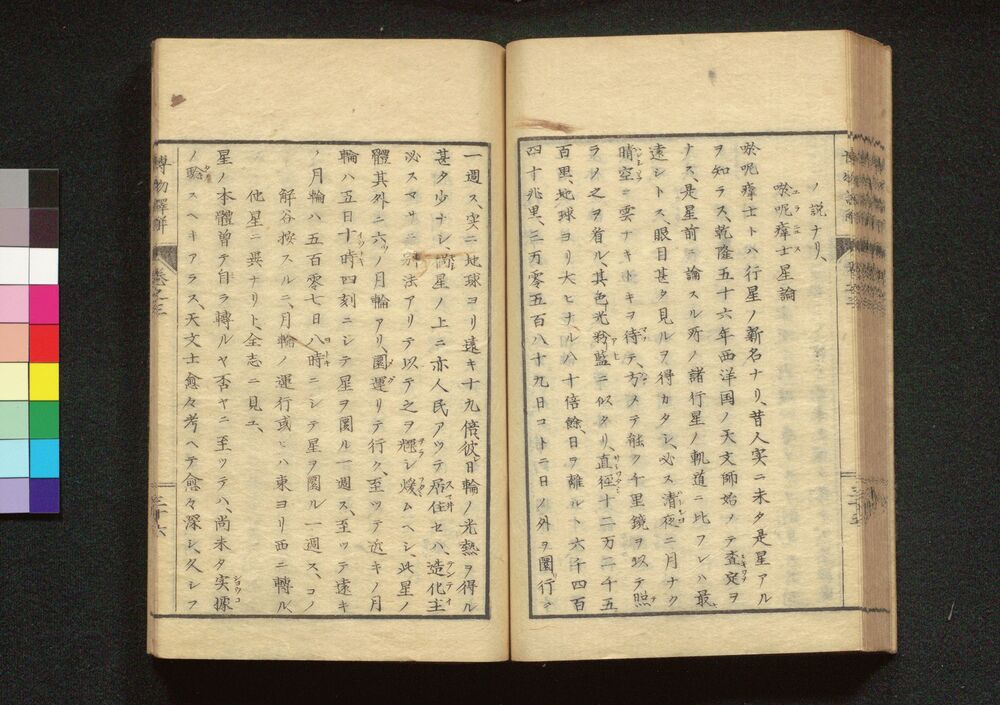 ノ説ナリ、
呶呢瘴士星論
呶呢瘴士トハ行星ノ新名ナリ、昔人実ニ未タ是星アル
ヲ知ラス、乾隆五十六年西洋国ノ天文師始メテ査定ヲ
ナス、是星前ニ論スル所ノ諸行星ノ軌道ニ比フレハ最
遠シトス、眼目甚タ見ルヲ得カタシ、必ス清夜ニ月ナク
晴空ニ雲ナキトキヲ待テ、方メテ能ク千里鏡ヲ以テ照
ラメ之ヲ看ル、其色光 藍ニ似タリ、直径十二万二千五
百里、地球ヨリ大ヒナルハ十倍餘、日ヲ離ルト六千四百
四十兆里、三万零五百八十九日コトニ日ノ外ヲ圜行
一週ス、実ニ地球ヨリ遠キ十九倍、彼日輪ノ光熱ヲ得ル
甚タ少ナシ、倘星ノ上ニ亦人民アツテ居住セハ、造化主
必スマサニ別法アリテ以テ之ヲ輝シ煖ムヘシ、此星ノ
體其外ニ六ツノ月輪アリ、圜運リテ行ク、至ツテ近キノ月
輪ハ五日十時四刻ニシテ星ヲ圜ル一週ス、至ツテ遠キ
ノ月輪ハ五百零七日八時ニシテ星ヲ圜ル一週ス、コノ
解谷按スルニ、月輪ノ運行或ヒハ東ヨリ西ニ轉ル、
他星ニ異ナリト、全志ニ見ユ、
星ノ本體曽テ自ラ轉ルヤ否ヤニ至ツテハ、尚未タ実據
ノ驗スヘキアラス、天文士愈々考ヘテ愈々深シ、久シフ
博物
巻之三
三十六